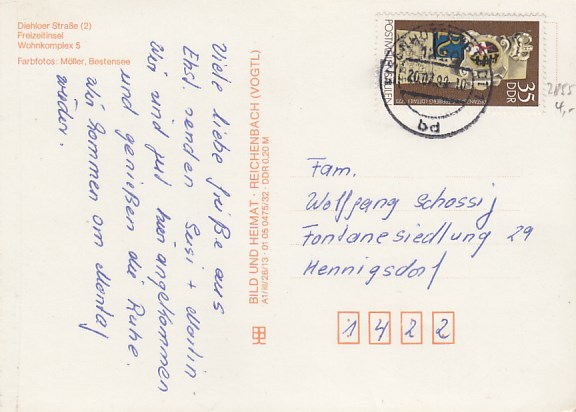 Diehloer Straße (2)
Freizeitinsel
Wohnkomplex 5
Farbfotos: Möller, Bestensee
Viele liebe Grüße aus
Ehst. senden Susi + Martin.
Wir sind gut hier angekommen
und genießen die Ruhe.
Wir kommen am Montag
wieder.
BILD UND HEIMAT · REICHENBACH (VOGTL)
A1/III/26/13 · 01 05 0475/32 DDR 0,20 M
POSTMEILENSÄULEN
35
DDR
4,-
Fam.
Wolfgang Schossig
Fontanesiedlung 29
Hennigsdorf
1 4 2 2